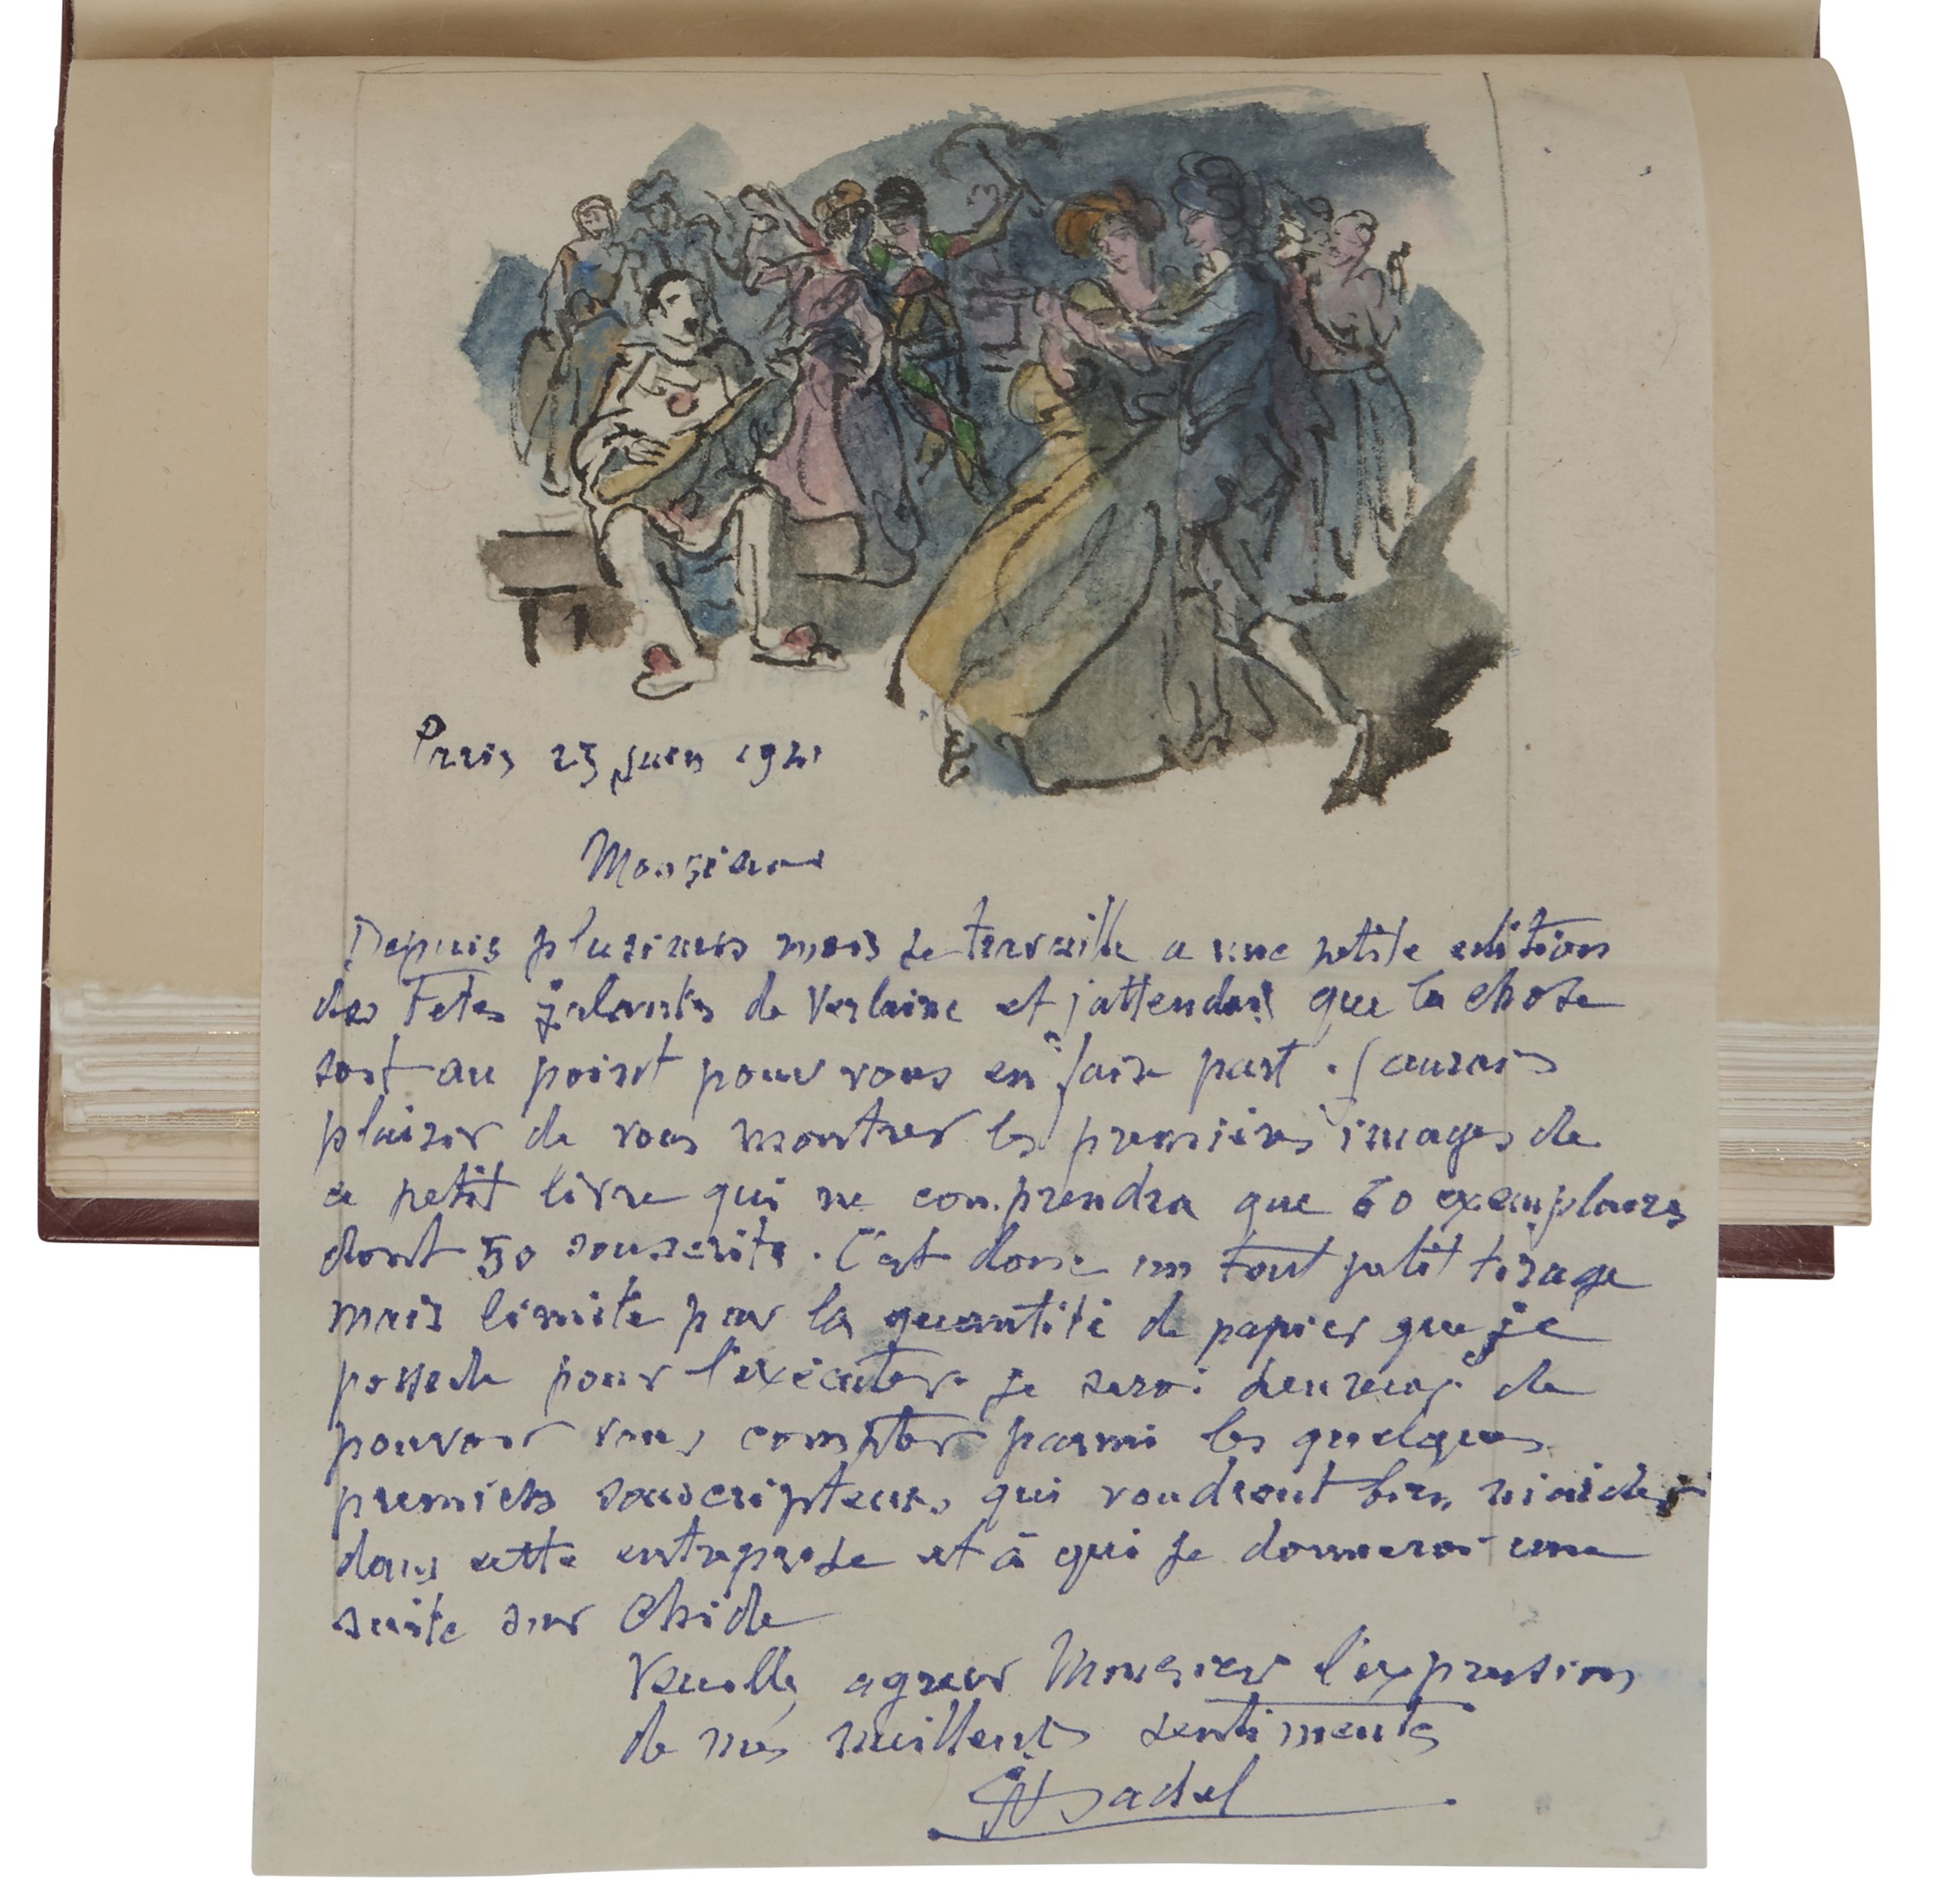 Paris 25 juin 1941
Monsieur
Depuis plusieurs mois je travaille a une petite edition
des Fetes galantes de Verlaine et j'attendais que la chose
soit au point pour vous en faire part. J'aurais
plaisir de vous montrer les premières images de
ce petit livre qui ne comprendra que 60 exemplaires
dont 50 souscrits. C'est donc un tout petit tirage
mais limité par la quantité de papier que je
possede pour l'exécuter. je serai heureux de
pouvoir vous compter parmi les quelques
premiers souscripteurs qui voudront bien m'aider
dans cette entreprise et à qui je donnerai une
suite sur Chine
Veuillez agreer Monsieur l'expression
de mes meilleurs sentiments